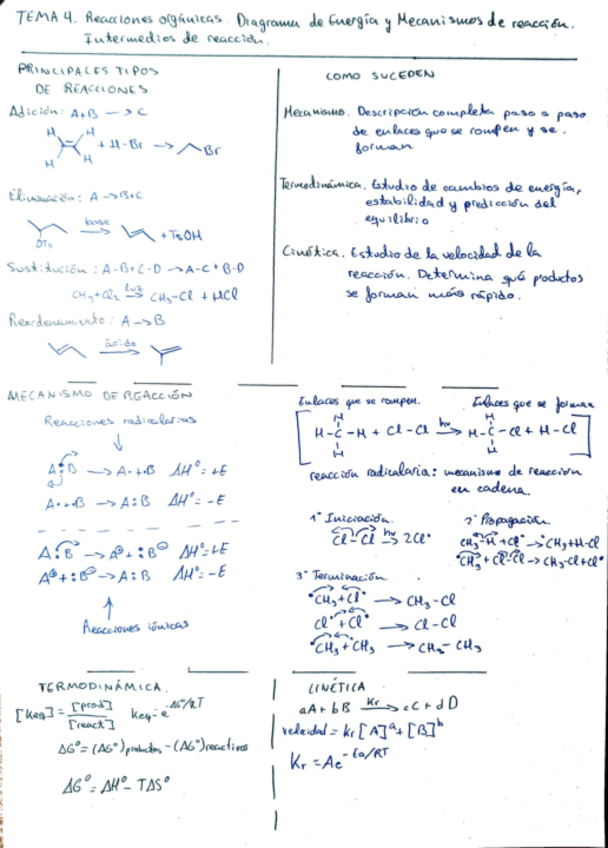 TEMA 4. Reacciones orgánicas. Diagrama de Energía y Mecanismos de reacción.
Intermedios de reacción.
PRINCIPALES TIPOS
DE REACCIONES
Adición: A+B → C
H H
+ H-Br → Br
H H
Eliminación: A → B+C
OTs
base
→ + TsOH
Sustitución: A-B+C-D → A-C + B-D
CH₄+Cl₂ luz→ CH₃-Cl + HCl
Reordenamiento: A → B
ácido
→
COMO SUCEDEN
Mecanismo. Descripción completa paso a paso
de enlaces que se rompen y se
forman
Termodinámica. Estudio de cambios de energía,
estabilidad y predicción del
equilibrio
Cinética. Estudio de la velocidad de la
reacción. Determina qué productos
se forman más rápido.
MECANISMO DE REACCIÓN
Reacciones radicalarias
↓
A:B → A·+·B ΔH°=+E
A·+·B → A:B ΔH°=-E
A:B → A⊕+:B⊖ ΔH°=+E
A⊕+:B⊖ → A:B ΔH°=-E
↑
Reacciones iónicas
Enlaces que se rompen. Enlaces que se forman
H H
H-C-H + Cl-Cl hν→ H-C-Cl + H-Cl
H H
reacción radicalaria: mecanismo de reacción
en cadena.
1° Iniciación.
Cl-Cl hν→ 2Cl·
2° Propagación
CH₃-H+Cl· → ·CH₃+H-Cl
·CH₃+Cl-Cl → CH₃-Cl+Cl·
3° Terminación
·CH₃+Cl· → CH₃-Cl
Cl·+Cl· → Cl-Cl
·CH₃+·CH₃ → CH₃-CH₃
TERMODINÁMICA.
[Keq]=[prod]/[react] keq=e^-ΔG°/RT
ΔG°=(ΔG°)productos-(ΔG°)reactivos
ΔG°=ΔH°-TΔS°
CINÉTICA
aA+bB Kr→ cC+dD
velocidad=Kr[A]ᵃ+[B]ᵇ
Kr=Ae^-Ea/RT